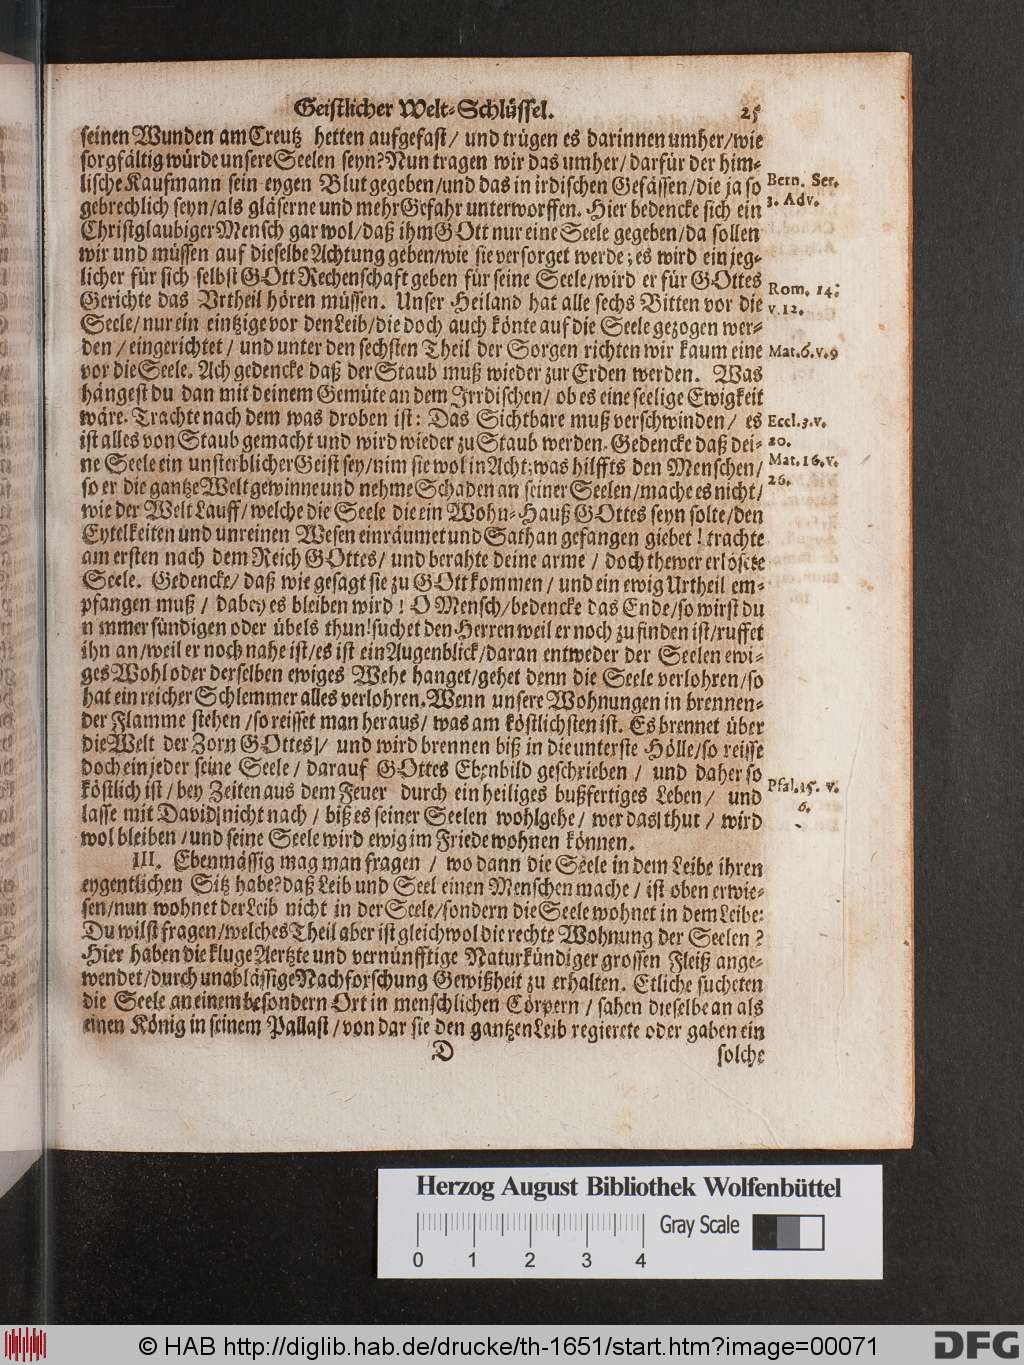 Geistlicher Welt-Schlüssel. 25
seinen Wunden am Creutz hetten aufgefast/ und trügen es darinnen umher/wie
sorgfältig würde unsere Seelen seyn? Nun tragen wir das umher/ darfür der him-
lische Kaufmann sein eygen Blut gegeben/und das in irdischen Gefässen/die ja so
Bern. Ser.
gebrechlich seyn/als gläserne und mehr Gefahr unterworffen. Hier bedencke sich ein
3. Adv.
Christglaubiger Mensch gar wol/daß ihm GOtt nur eine Seele gegeben/da sollen
wir und müssen auf dieselbe Achtung geben/wie sie versorget werde; es wird ein jeg-
licher für sich selbst GOtt Rechenschaft geben für seine Seele/wird er für GOttes
Rom. 14:
Gerichte das Vrtheil hören müssen. Unser Heiland hat alle sechs Bitten vor die
v. 12.
Seele/nur ein eintzige vor den Leib/die doch auch könte auf die Seele gezogen wer-
den/ eingerichtet/ und unter den sechsten Theil der Sorgen richten wir kaum eine
Mat. 6. v. 9
vor die Seele. Ach gedencke daß der Staub muß wieder zur Erden werden. Was
hängest du dan mit deinem Gemüte an dem Irrdischen/ ob es eine seelige Ewigkeit
wäre. Trachte nach dem was droben ist: Das Sichtbare muß verschwinden/ es
Eccl. 3. v.
ist alles von Staub gemacht und wird wieder zu Staub werden. Gedencke daß dei-
20.
ne Seele ein unsterblicher Geist sey/nim sie wol in Acht; was hilffts den Menschen/
Mat. 16. v.
so er die gantze Welt gewinne und nehme Schaden an seiner Seelen/mache es nicht/
26.
wie der Welt Lauff/welche die Seele die ein Wohn-Hauß GOttes seyn solte/den
Eytelkeiten und unreinen Wesen einräumet und Sathan gefangen giebet! trachte
am ersten nach dem Reich GOttes/ und berahte deine arme/ doch thewer erlösete
Seele. Gedencke/ daß wie gesagt sie zu GOtt kommen/ und ein ewig Urtheil em-
pfangen muß/ dabey es bleiben wird! O Mensch/bedencke das Ende/so wirst du
nimmer sündigen oder übels thun! suchet den Herren weil er noch zu finden ist/ruffet
ihn an/weil er noch nahe ist/es ist ein Augenblick/daran entweder der Seelen ewi-
ges Wohl oder derselben ewiges Wehe hanget/gehet denn die Seele verlohren/so
hat ein reicher Schlemmer alles verlohren. Wenn unsere Wohnungen in brennen-
der Flamme stehen/so reisset man heraus/ was am köstlichsten ist. Es brennet über
die Welt der Zorn GOttes/ und wird brennen biß in die unterste Hölle/so reisse
doch ein jeder seine Seele/ darauf GOttes Ebenbild geschrieben/ und daher so
köstlich ist/ bey Zeiten aus dem Feuer durch ein heiliges bußfertiges Leben/ und
Psal. 15. v.
lasse mit David nicht nach/ biß es seiner Seelen wohlgehe/ wer das thut/ wird
6.
wol bleiben/und seine Seele wird ewig im Friede wohnen können.
III. Ebenmässig mag man fragen/ wo dann die Seele in dem Leibe ihren
eygentlichen Sitz habe? daß Leib und Seel einen Menschen mache/ ist oben erwie-
sen/nun wohnet der Leib nicht in der Seele/sondern die Seele wohnet in dem Leibe:
Du wilst fragen/welches Theil aber ist gleichwol die rechte Wohnung der Seelen?
Hier haben die kluge Aertzte und vernünfftige Naturkündiger grossen Fleiß ange-
wendet/durch unablässige Nachforschung Gewißheit zu erhalten. Etliche sucheten
die Seele an einem besondern Ort in menschlichen Cörpern/ sahen dieselbe an als
einen König in seinem Pallast/von dar sie den gantzen Leib regierete oder gaben ein
D solche
Herzog August Bibliothek Wolfenbüttel
Gray Scale
0 1 2 3 4
© HAB http://diglib.hab.de/drucke/th-1651/start.htm?image=00071
DFG